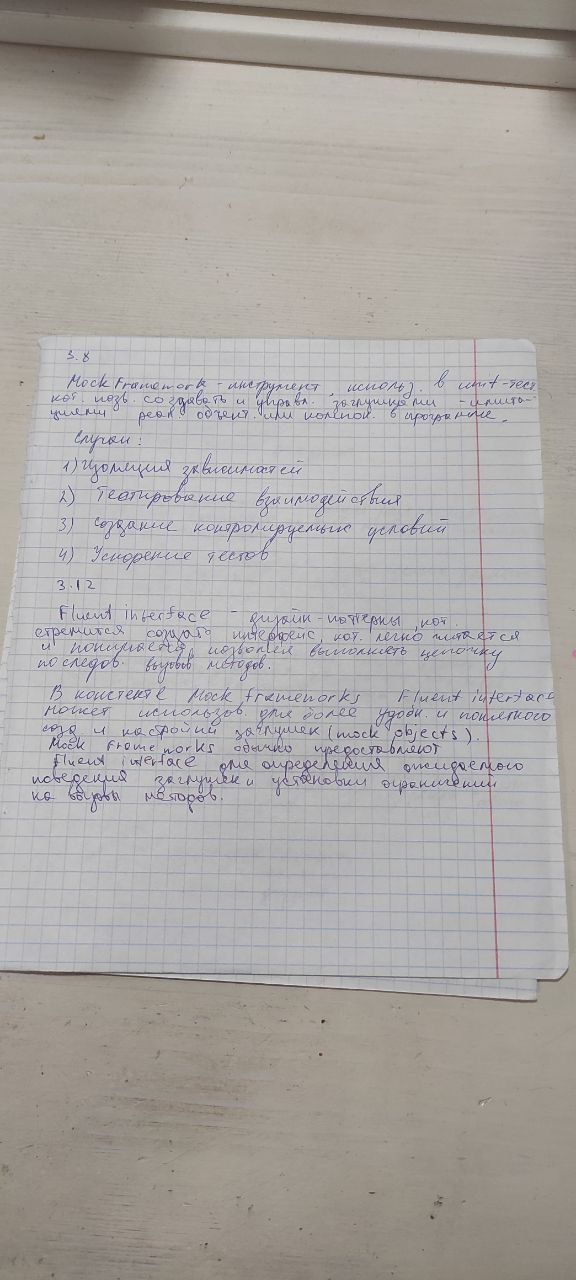 3.8
Mock Framework - инструмент, использ. в unit-тест
кот. позв. создавать и управл. заглушками -имита-
циями реал. объект. или компон. в программе.
Случаи:
1) Изоляция зависимостей
2) Тестирование взаимодействия
3) Создание контролируемых условий
4) Ускорение тестов
3.12
Fluent interface - дизайн-паттерны, кот.
стремится создать интерфейс, кот. легко читается
и понимается, позволяя выполнять цепочку
последов. вызовов методов.
В контексте Mock frameworks Fluent interface
может использов. для более удобн. и понятного
созд и настройки заглушек (mock objects).
Mock Frameworks обычно предоставляют
Fluent interface для определения ожидаемого
поведения заглушек и установки ограничений
на вызовы методов.